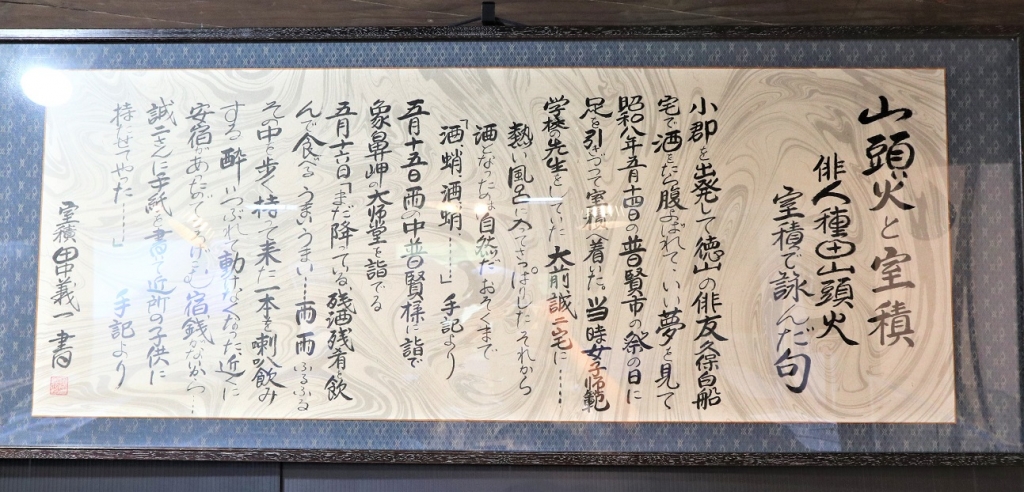 山頭火と室積
俳人種田山頭火
室積で詠んだ句
小郡を出発して徳山の俳友久保白船
宅で酒をたら腹よばれて、いい夢を見て
昭和八年五月十四日の普賢市の祭の日に
足を引づって室積へ着いた。当時女子師範
学校の先生をしていた 大前誠二宅に……
熱い風呂に入てさっぱりした それから
酒になったよ 自然だ おそくまで
「酒蛸酒蛸……」 手記より
五月十五日 雨の中普賢様に詣で
象鼻岬の大師堂を詣でる
五月十六日「まだ降ている、残酒残肴飲
んで食べる うまいうまい……雨雨 ふるふる
その中を歩く 持て来た一本を喇叭飲み
する 酔いつぶれて動けなくなった 近くに
安宿のあたので ころりこむ 宿銭ないから…
誠二さんに手紙を書いて近所の子供に
持たせてやた……」 手記より
室積 田中義一 書